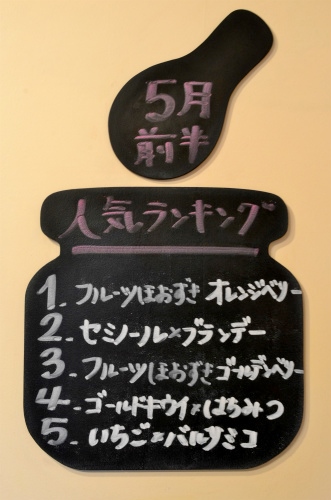 5月
前半
人気ランキング
1. フルーツほおずき オレンジベリー
2. セミノール×ブランデー
3. フルーツほおずき ゴールデンベリー
4. ゴールドキウイ×はちみつ
5. いちご×バルサミコ